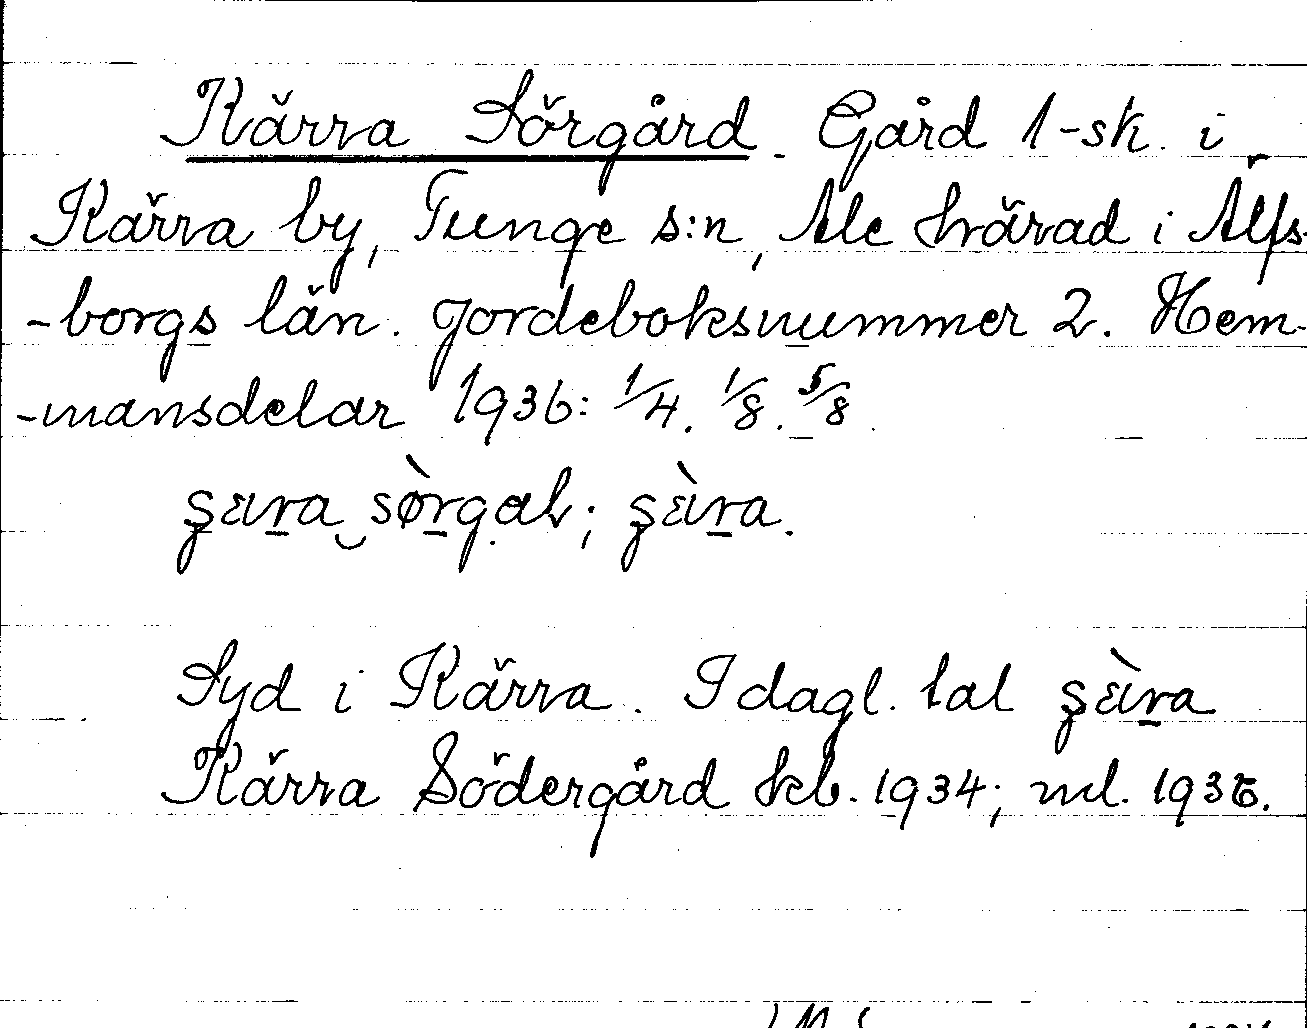 Kärra Sörgård. Gård 1-sk. i
Kärra by, Tunge s:n, Ale härad i Älfs-
-borgs län. Jordeboksnummer 2. Hem-
-mansdelar 1936: 1/4. 1/8. 5/8.
Syd i Kärra. I dagl. tal
Kärra Södergård kb. 1934; ml. 1936.